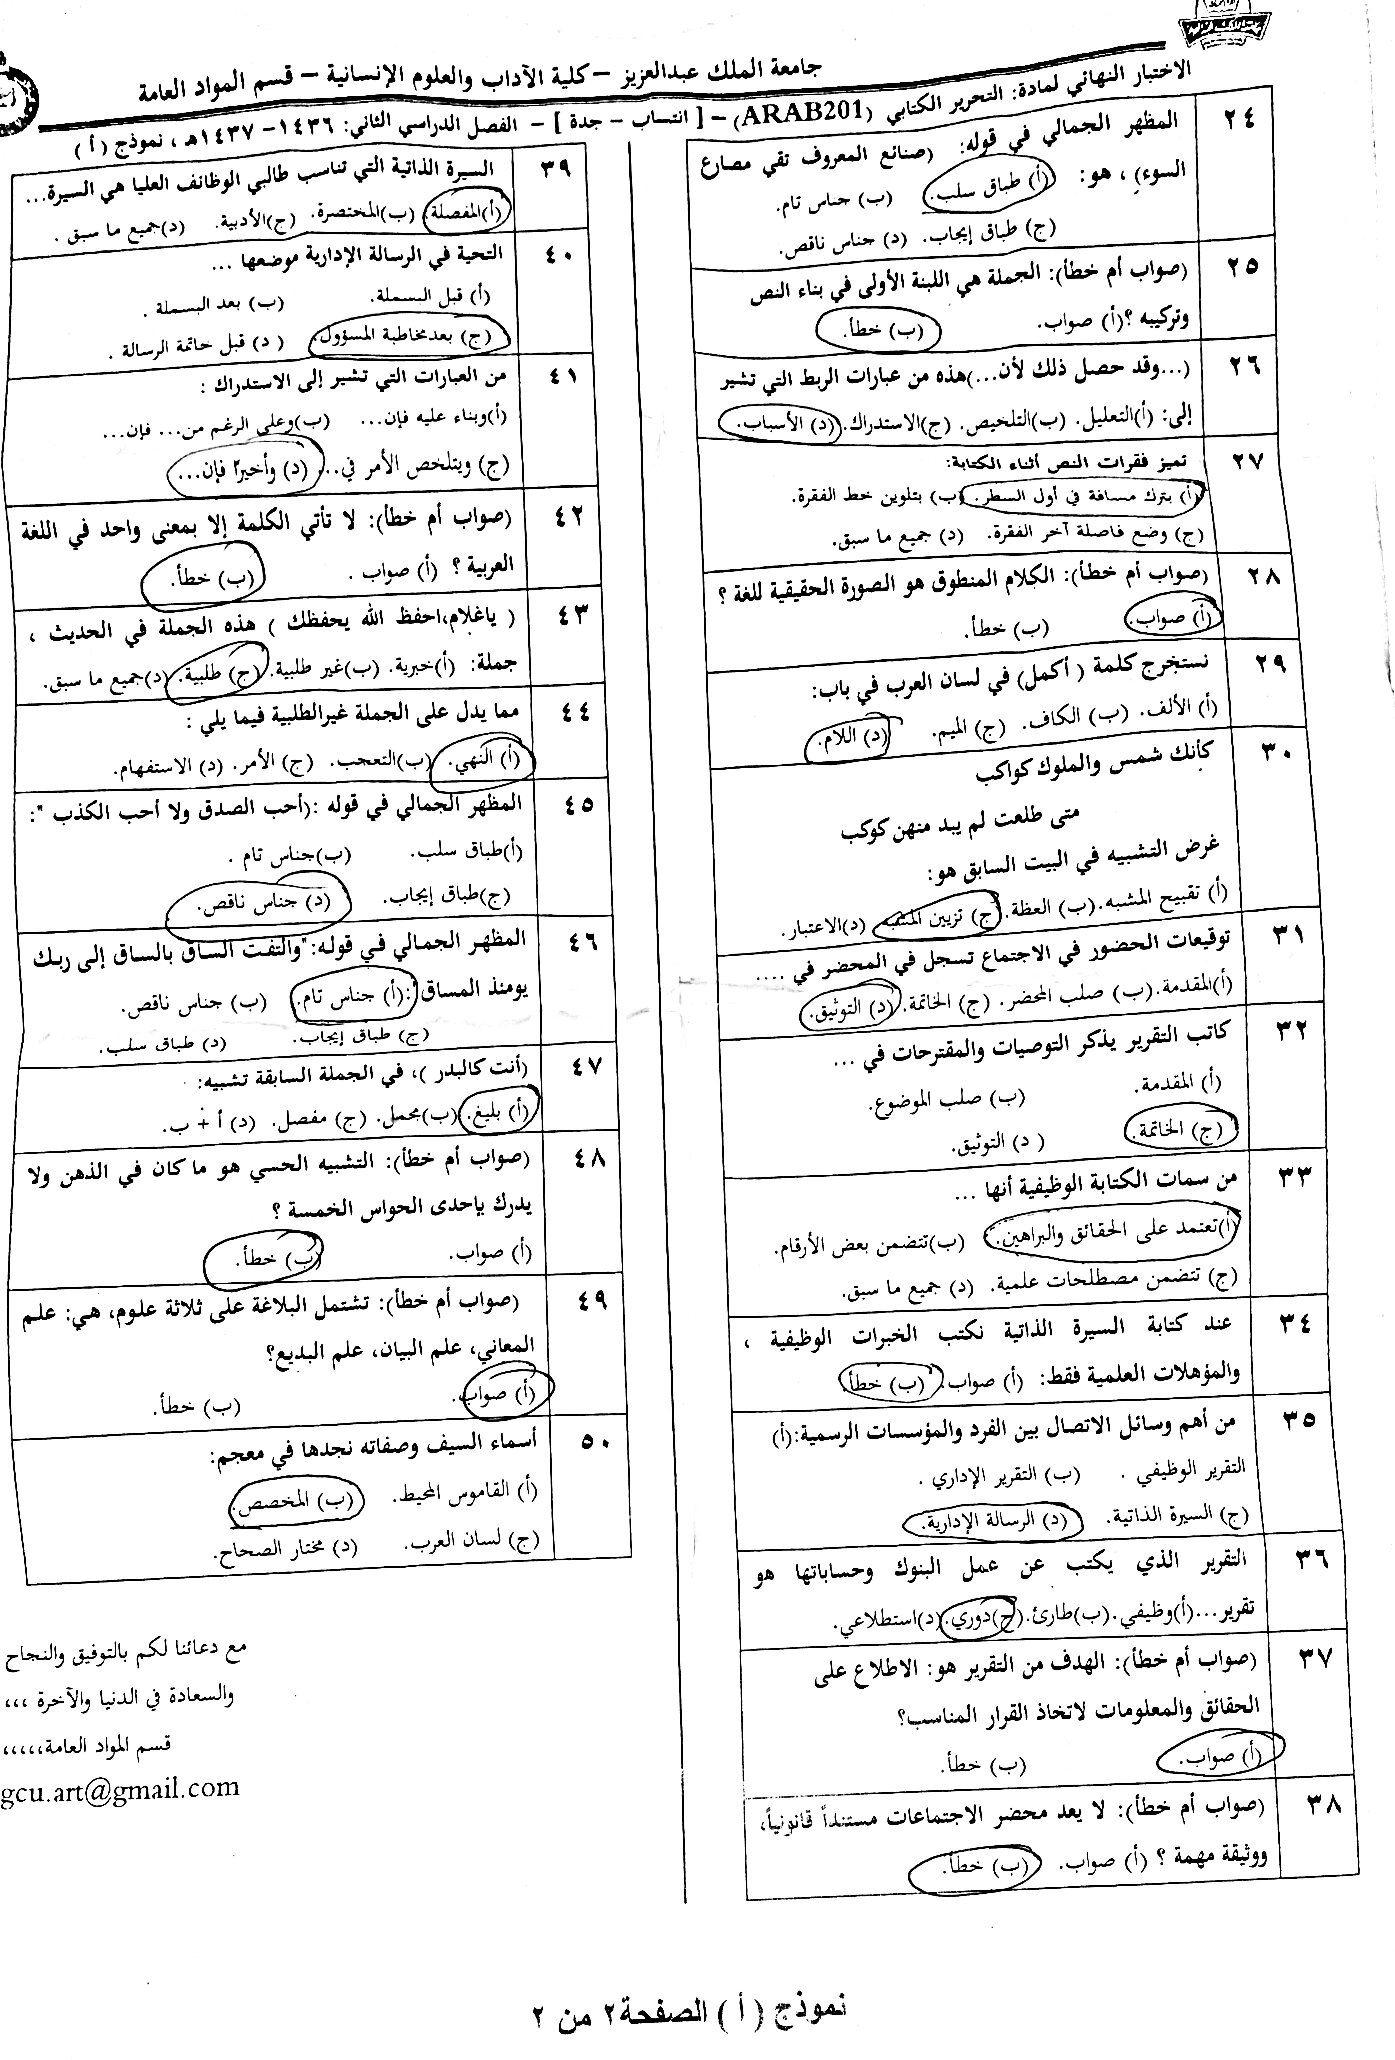 جامعة الملك عبدالعزيز – كلية الآداب والعلوم الإنسانية – قسم المواد العامة
الاختبار النهائي لمادة: التحرير الكتابي (ARAB201) – [ انتساب – جدة ] – الفصل الدراسي الثاني: ١٤٣٦ – ١٤٣٧هـ ، نموذج ( أ )
٢٤ المظهر الجمالي في قوله: (صنائع المعروف تقي مصارع
السوء) ، هو: (أ) طباق سلب. (ب) جناس تام.
(ج) طباق إيجاب. (د) جناس ناقص.
٢٥ (صواب أم خطأ): الجملة هي اللبنة الأولى في بناء النص
وتركيبه ؟ (أ) صواب. (ب) خطأ.
٢٦ (...وقد حصل ذلك لأن...)هذه من عبارات الربط التي تشير
إلى: (أ)التعليل. (ب)التلخيص. (ج)الاستدراك. (د) الأسباب.
٢٧ تميز فقرات النص أثناء الكتابة:
(أ) بترك مسافة في أول السطر. (ب) بتلوين خط الفقرة.
(ج) وضع فاصلة آخر الفقرة. (د) جميع ما سبق.
٢٨ (صواب أم خطأ): الكلام المنطوق هو الصورة الحقيقية للغة ؟
(أ) صواب. (ب) خطأ.
٢٩ نستخرج كلمة ( أكمل) في لسان العرب في باب:
(أ) الألف. (ب) الكاف. (ج) الميم. (د) اللام.
٣٠ كأنك شمس والملوك كواكب
متى طلعت لم يبد منهن كوكب
غرض التشبيه في البيت السابق هو:
(أ) تقبيح المشبه. (ب) العظة. (ج) تزيين المشبه (د)الاعتبار.
٣١ توقيعات الحضور في الاجتماع تسجل في المحضر في ....
(أ)المقدمة. (ب) صلب المحضر. (ج) الخاتمة. (د) التوثيق.
٣٢ كاتب التقرير يذكر التوصيات والمقترحات في ...
(أ) المقدمة. (ب) صلب الموضوع.
(ج) الخاتمة. ( د) التوثيق.
٣٣ من سمات الكتابة الوظيفية أنها ...
(أ)تعتمد على الحقائق والبراهين. (ب)تتضمن بعض الأرقام.
(ج) تتضمن مصطلحات علمية. (د) جميع ما سبق.
٣٤ عند كتابة السيرة الذاتية نكتب الخبرات الوظيفية ،
والمؤهلات العلمية فقط: (أ) صواب. (ب) خطأ.
٣٥ من أهم وسائل الاتصال بين الفرد والمؤسسات الرسمية:(أ)
التقرير الوظيفي . (ب) التقرير الإداري .
(ج) السيرة الذاتية. (د) الرسالة الإدارية.
٣٦ التقرير الذي يكتب عن عمل البنوك وحساباتها هو
تقرير...(أ)وظيفي. (ب)طارئ. (ج)دوري. (د)استطلاعي.
٣٧ (صواب أم خطأ): الهدف من التقرير هو: الاطلاع على
الحقائق والمعلومات لاتخاذ القرار المناسب؟
(أ) صواب. (ب) خطأ.
٣٨ (صواب أم خطأ): لا يعد محضر الاجتماعات مستنداً قانونياً،
ووثيقة مهمة ؟ (أ) صواب. (ب) خطأ.
٣٩ السيرة الذاتية التي تناسب طالبي الوظائف العليا هي السيرة...
(أ)المفصلة. (ب)المختصرة. (ج)الأدبية. (د)جميع ما سبق .
٤٠ التحية في الرسالة الإدارية موضعها ...
(أ) قبل البسملة. (ب) بعد البسملة .
(ج) بعدمخاطبة المسؤول. ( د) قبل خاتمة الرسالة .
٤١ من العبارات التي تشير إلى الاستدراك :
(أ)وبناء عليه فإن... (ب)وعلى الرغم من... فإن...
(ج) ويتلخص الأمر في... (د) وأخيرًا فإن...
٤٢ (صواب أم خطأ): لا تأتي الكلمة إلا بمعنى واحد في اللغة
العربية ؟ (أ) صواب . (ب) خطأ.
٤٣ ( ياغلام،احفظ الله يحفظك ) هذه الجملة في الحديث ،
جملة: (أ)خبرية. (ب)غير طلبية. (ج) طلبية. (د)جميع ما سبق.
٤٤ مما يدل على الجملة غيرالطلبية فيما يلي :
(أ) النهي. (ب)التعجب. (ج) الأمر. (د) الاستفهام.
٤٥ المظهر الجمالي في قوله :(أحب الصدق ولا أحب الكذب ":
(أ)طباق سلب. (ب)جناس تام .
(ج)طباق إيجاب. (د) جناس ناقص.
٤٦ المظهر الجمالي في قوله:"والتفت الساق بالساق إلى ربك
يومئذ المساق":(أ) جناس تام. (ب) جناس ناقص.
(ج) طباق إيجاب. (د) طباق سلب.
٤٧ (أنت كالبدر )، في الجملة السابقة تشبيه:
(أ) بليغ. (ب)مجمل. (ج) مفصل. (د) أ + ب.
٤٨ (صواب أم خطأ): التشبيه الحسي هو ماكان في الذهن ولا
يدرك بإحدى الحواس الخمسة ؟
(أ) صواب. (ب) خطأ.
٤٩ (صواب أم خطأ): تشتمل البلاغة على ثلاثة علوم، هي: علم
المعاني، علم البيان، علم البديع؟
(أ) صواب. (ب) خطأ.
٥٠ أسماء السيف وصفاته نجدها في معجم:
(أ) القاموس المحيط. (ب) المخصص.
(ج) لسان العرب. (د) مختار الصحاح.
مع دعائنا لكم بالتوفيق والنجاح
والسعادة في الدنيا والآخرة ،،،
قسم المواد العامة،،،،،
gcu.art@gmail.com
نموذج ( أ ) الصفحة٢ من ٢